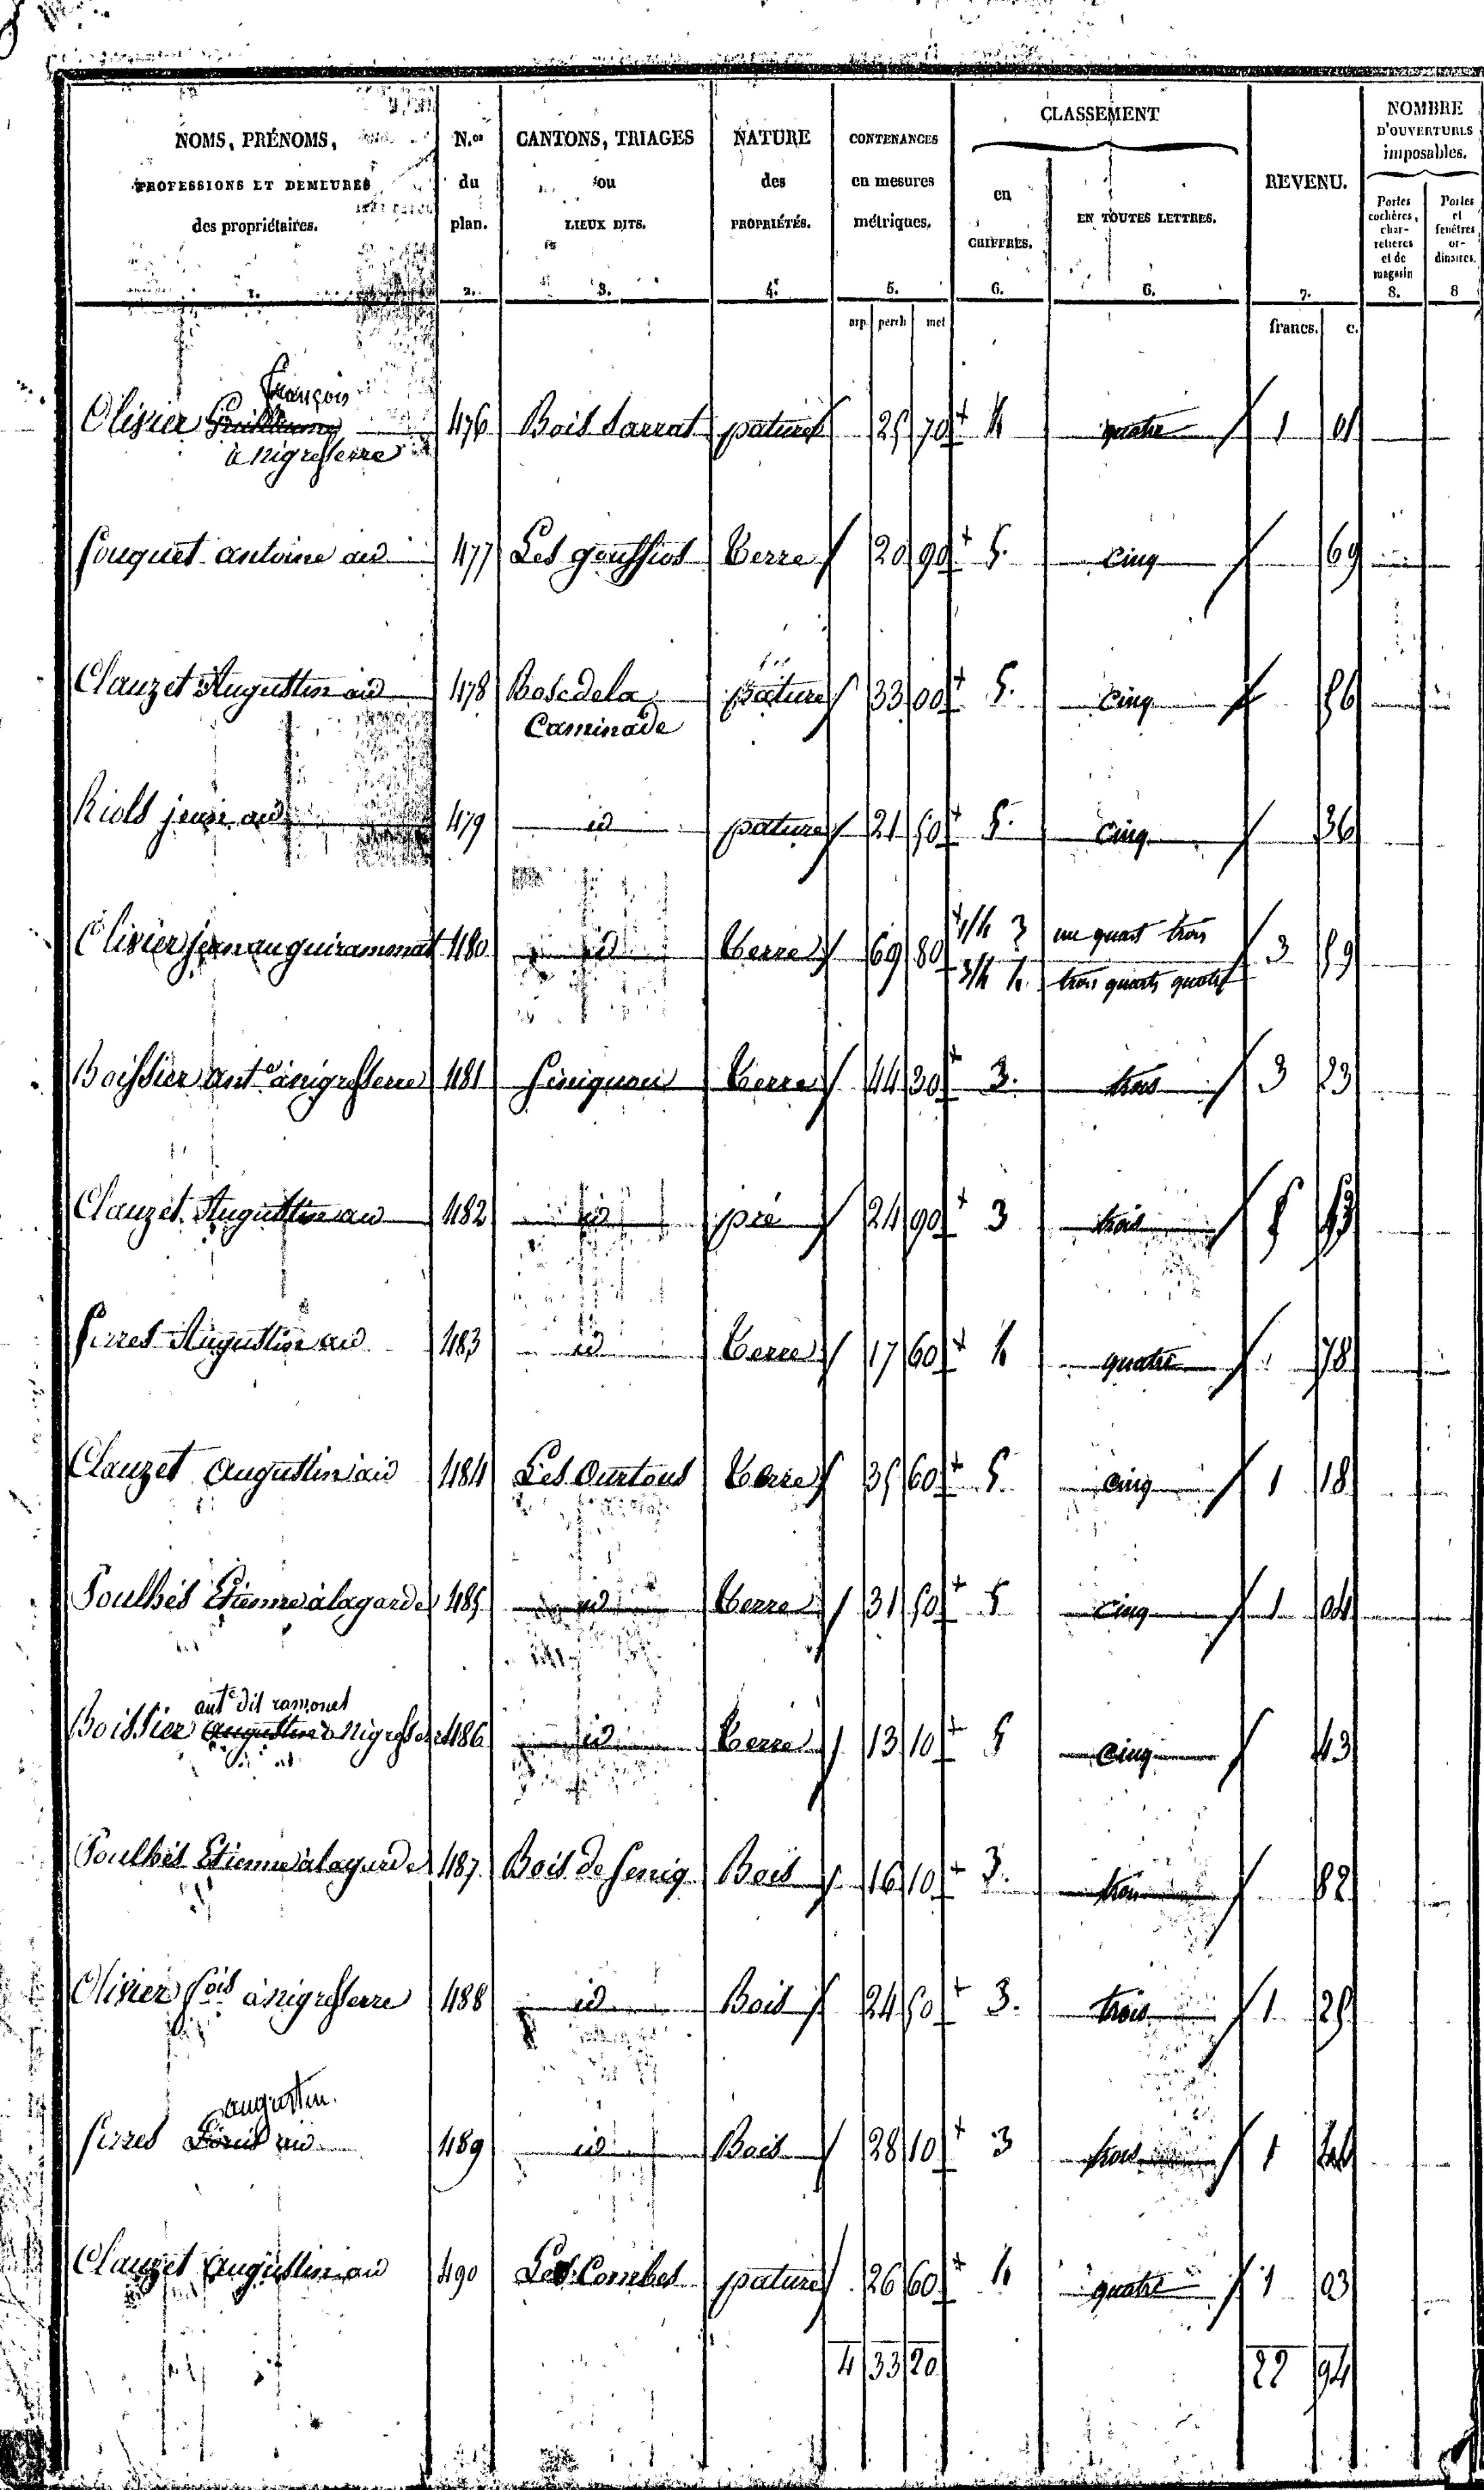 NOMS, PRÉNOMS, PROFESSIONS ET DEMEURES des propriétaires. 1. | N.os du plan. 2. | CANTONS, TRIAGES ou LIEUX DITS. 3. | NATURE des PROPRIÉTÉS. 4. | CONTENANCES en mesures métriques. 5. | CLASSEMENT en CHIFFRES. 6. | EN TOUTES LETTRES. 6. | REVENU. 7. | NOMBRE D'OUVERTURES imposables. Portes cochères, charretières et de magasin 8. | Portes et fenêtres ordinaires. 8
arp. perch. met. francs. c.
françois
Olivier Guillaume 476 Bois Sarrat pature 25 70 4 quatre 1 01
à nigresserre
fouquet antoine au 477 Les gouffios terre 20 90 5. cinq 69
Clauzet Augustin au 478 Bosc de la pature 33 00 5. cinq 56
Caminade
Riols jean au 479 id pature 21 50 5. cinq 36
Olivier jean au guirammat 480 id terre 69 80 1/4 3 un quart trois 3 59
3/4 4. trois quarts quatre
Boissier ant.e à nigresserre 481 terre 44 30 3. trois 3 23
Clauzet Augustin au 482 id pré 24 90 3 trois 5
Augustin au 483 id terre 17 60 4 quatre 78
Clauzet augustin au 484 Les Ourtous terre 35 60 5 cinq 1 18
Poulhés Etienne à lagarde 485 id terre 31 50 5 cinq 1 04
ant.e dit ramonet
Boissier augustin à nigresserre 486 id terre 13 10 5 cinq 43
Poulhés Etienne à lagarde 487. Bois de Bois 16 10 3. trois 82
Olivier f.ois à nigresserre 488 id Bois 24 50 3. trois 1 25
augustin.
Louis au 489 id Bois 28 10 3 trois 1 44
Clauzet augustin au 490 Les Combes pature 26 60 4 quatre 1 03
4 33 20 22 94